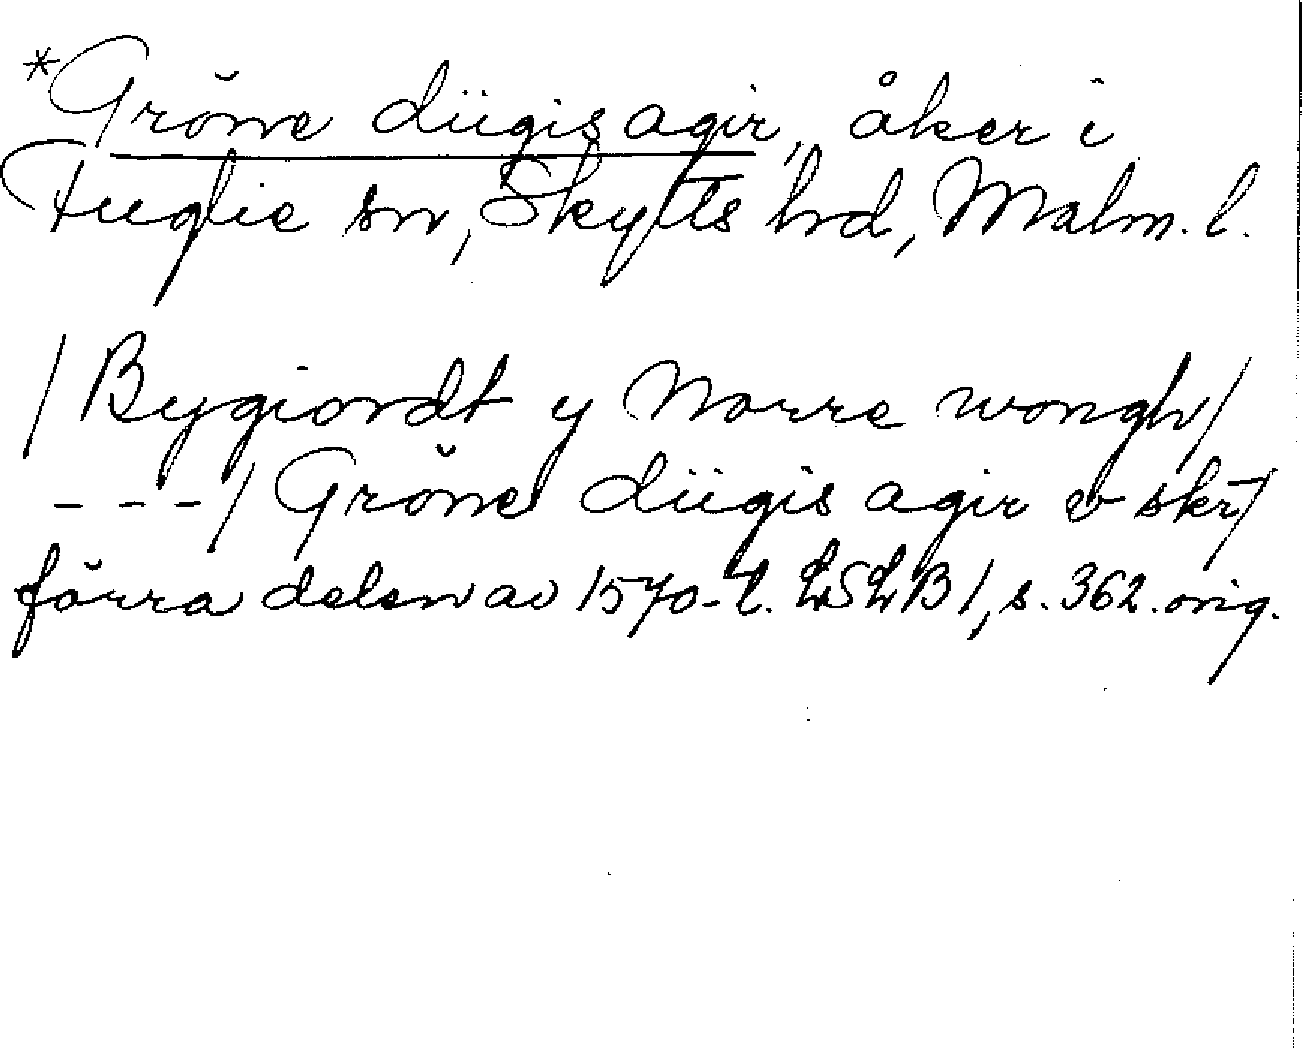 *Grőne dügis agir, åker i
Fuglie sn, Skytts hrd, Malm. l.
/Bygiordt y Norre wongh/
---/ Grőne dügis agir o skr/
förra delen av 1570-t. LSLB 1, s. 362. orig.